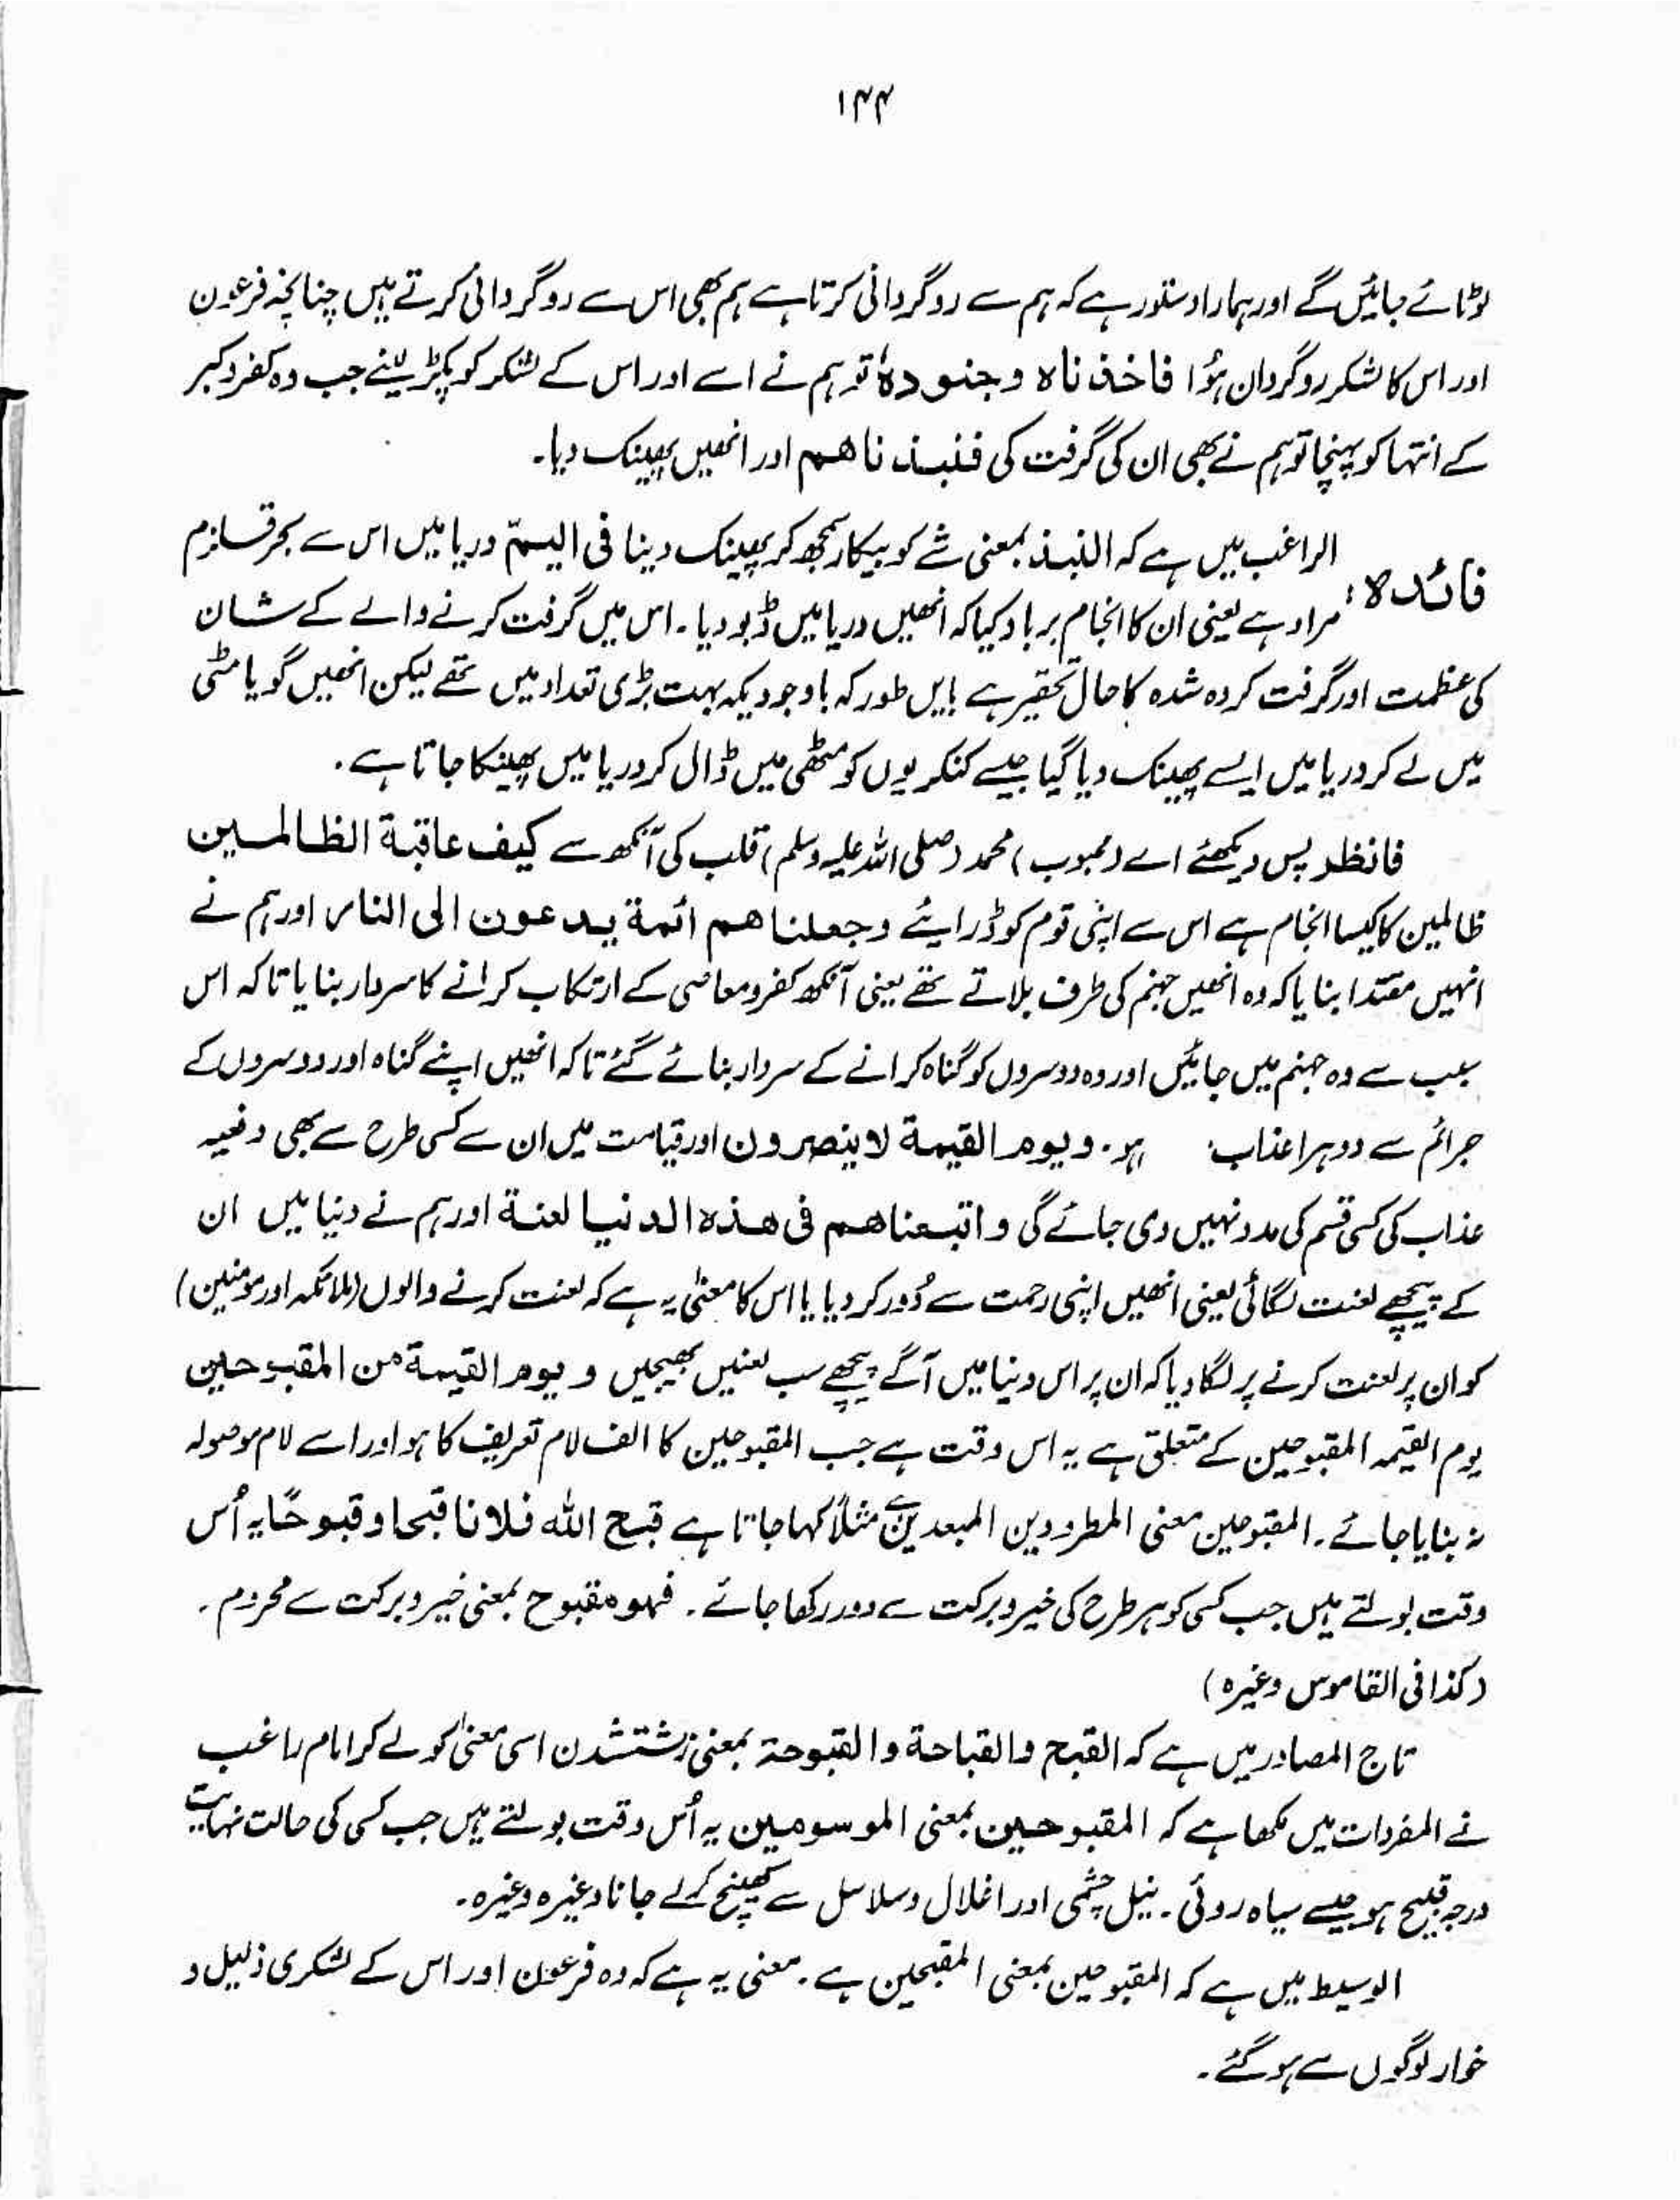 ۱۴۴
لوٹائے جائیں گے اور ہمارا دستور ہے کہ ہم سے روگردانی کرتا ہے ہم بھی اس سے روگردانی کرتے ہیں چنانچہ فرعون
اور اس کا لشکر روگردان ہؤا فاخذناہ وجنودہٗ تو ہم نے اسے اور اس کے لشکر کو پکڑ لینے جب وہ کفر و کبر
کے انتہا کو پہنچا تو ہم نے بھی ان کی گرفت کی فنبذناھم اور انھیں پھینک دیا۔
الراغب میں ہے کہ النبذ بمعنی شے کو بیکار سمجھ کر پھینک دینا فی الیمّ دریا میں اس سے بحر قلزم
فائدہ: مراد ہے یعنی ان کا انجام برباد کیا کہ انھیں دریا میں ڈبو دیا۔ اس میں گرفت کرنے والے کے شان
کی عظمت اور گرفت کردہ شدہ کا حال تحقیر ہے بایں طور کہ باوجودیکہ بہت بڑی تعداد میں تھے لیکن انھیں گویا مٹی
میں لے کر دریا میں ایسے پھینک دیا گیا جیسے کنکریوں کو مٹھی میں ڈال کر دریا میں پھینکا جاتا ہے۔
فانظر پس دیکھئے اے (محبوب) محمد (صلی اللہ علیہ وسلم) قلب کی آنکھ سے کیف عاقبة الظالمین
ظالمین کا کیسا انجام ہے اس سے اپنی قوم کو ڈرایئے وجعلناھم ائمة یدعون الی النار اور ہم نے
انہیں مقتدا بنایا کہ وہ انھیں جہنم کی طرف بلاتے تھے یعنی آنکھ کفر و معاصی کے ارتکاب کرانے کا سردار بنایا تاکہ اس
سبب سے وہ جہنم میں جائیں اور وہ دوسروں کو گناہ کرانے کے سردار بنائے گئے تاکہ انھیں اپنے گناہ اور دوسروں کے
جرائم سے دوہرا عذاب ہو۔ ویوم القیمة لا ینصرون اور قیامت میں ان سے کسی طرح سے بھی دفعیہ
عذاب کی کسی قسم کی مدد نہیں دی جائے گی واتبعناھم فی ھذہ الدنیا لعنة اور ہم نے دنیا میں ان
کے پیچھے لعنت لگائی یعنی انھیں اپنی رحمت سے دُور کر دیا یا اس کا معنیٰ یہ ہے کہ لعنت کرنے والوں (ملائکہ اور مومنین)
کو ان پر لعنت کرنے پر لگا دیا کہ ان پر اس دنیا میں آگے پیچھے سب لعنیں بھیجیں ویوم القیمة من المقبوحین
یوم القیمہ المقبوحین کے متعلق ہے یہ اس وقت ہے جب المقبوحین کا الف لام تعریف کا ہو اور اسے لام موصولہ
نہ بنایا جائے۔ المقبوحین معنی المطرودین المبعدین ہے مثلاً کہا جاتا ہے قبح اللہ فلانا قبحا و قبوحًا یہ اُس
وقت بولتے ہیں جب کسی کو ہر طرح کی خیر و برکت سے دور رکھا جائے۔ فھو مقبوح بمعنی خیر و برکت سے محروم۔
(کذا فی القاموس وغیرہ)
تاج المصادر میں ہے کہ القبح والقباحة والقبوحة بمعنی زشت شدن اسی معنیٰ کو لے کر امام راغب
نے المفردات میں لکھا ہے کہ المقبوحین بمعنی الموسومین یہ اُس وقت بولتے ہیں جب کسی کی حالت نہایت
درجہ قبیح ہو جیسے سیاہ روئی۔ نیل چشمی اور اغلال و سلاسل سے کھینچ کر لے جانا وغیرہ وغیرہ۔
الوسیط میں ہے کہ المقبوحین بمعنی المقبحین ہے۔ معنی یہ ہے کہ وہ فرعون اور اس کے لشکری ذلیل و
خوار لوگوں سے ہو گئے۔